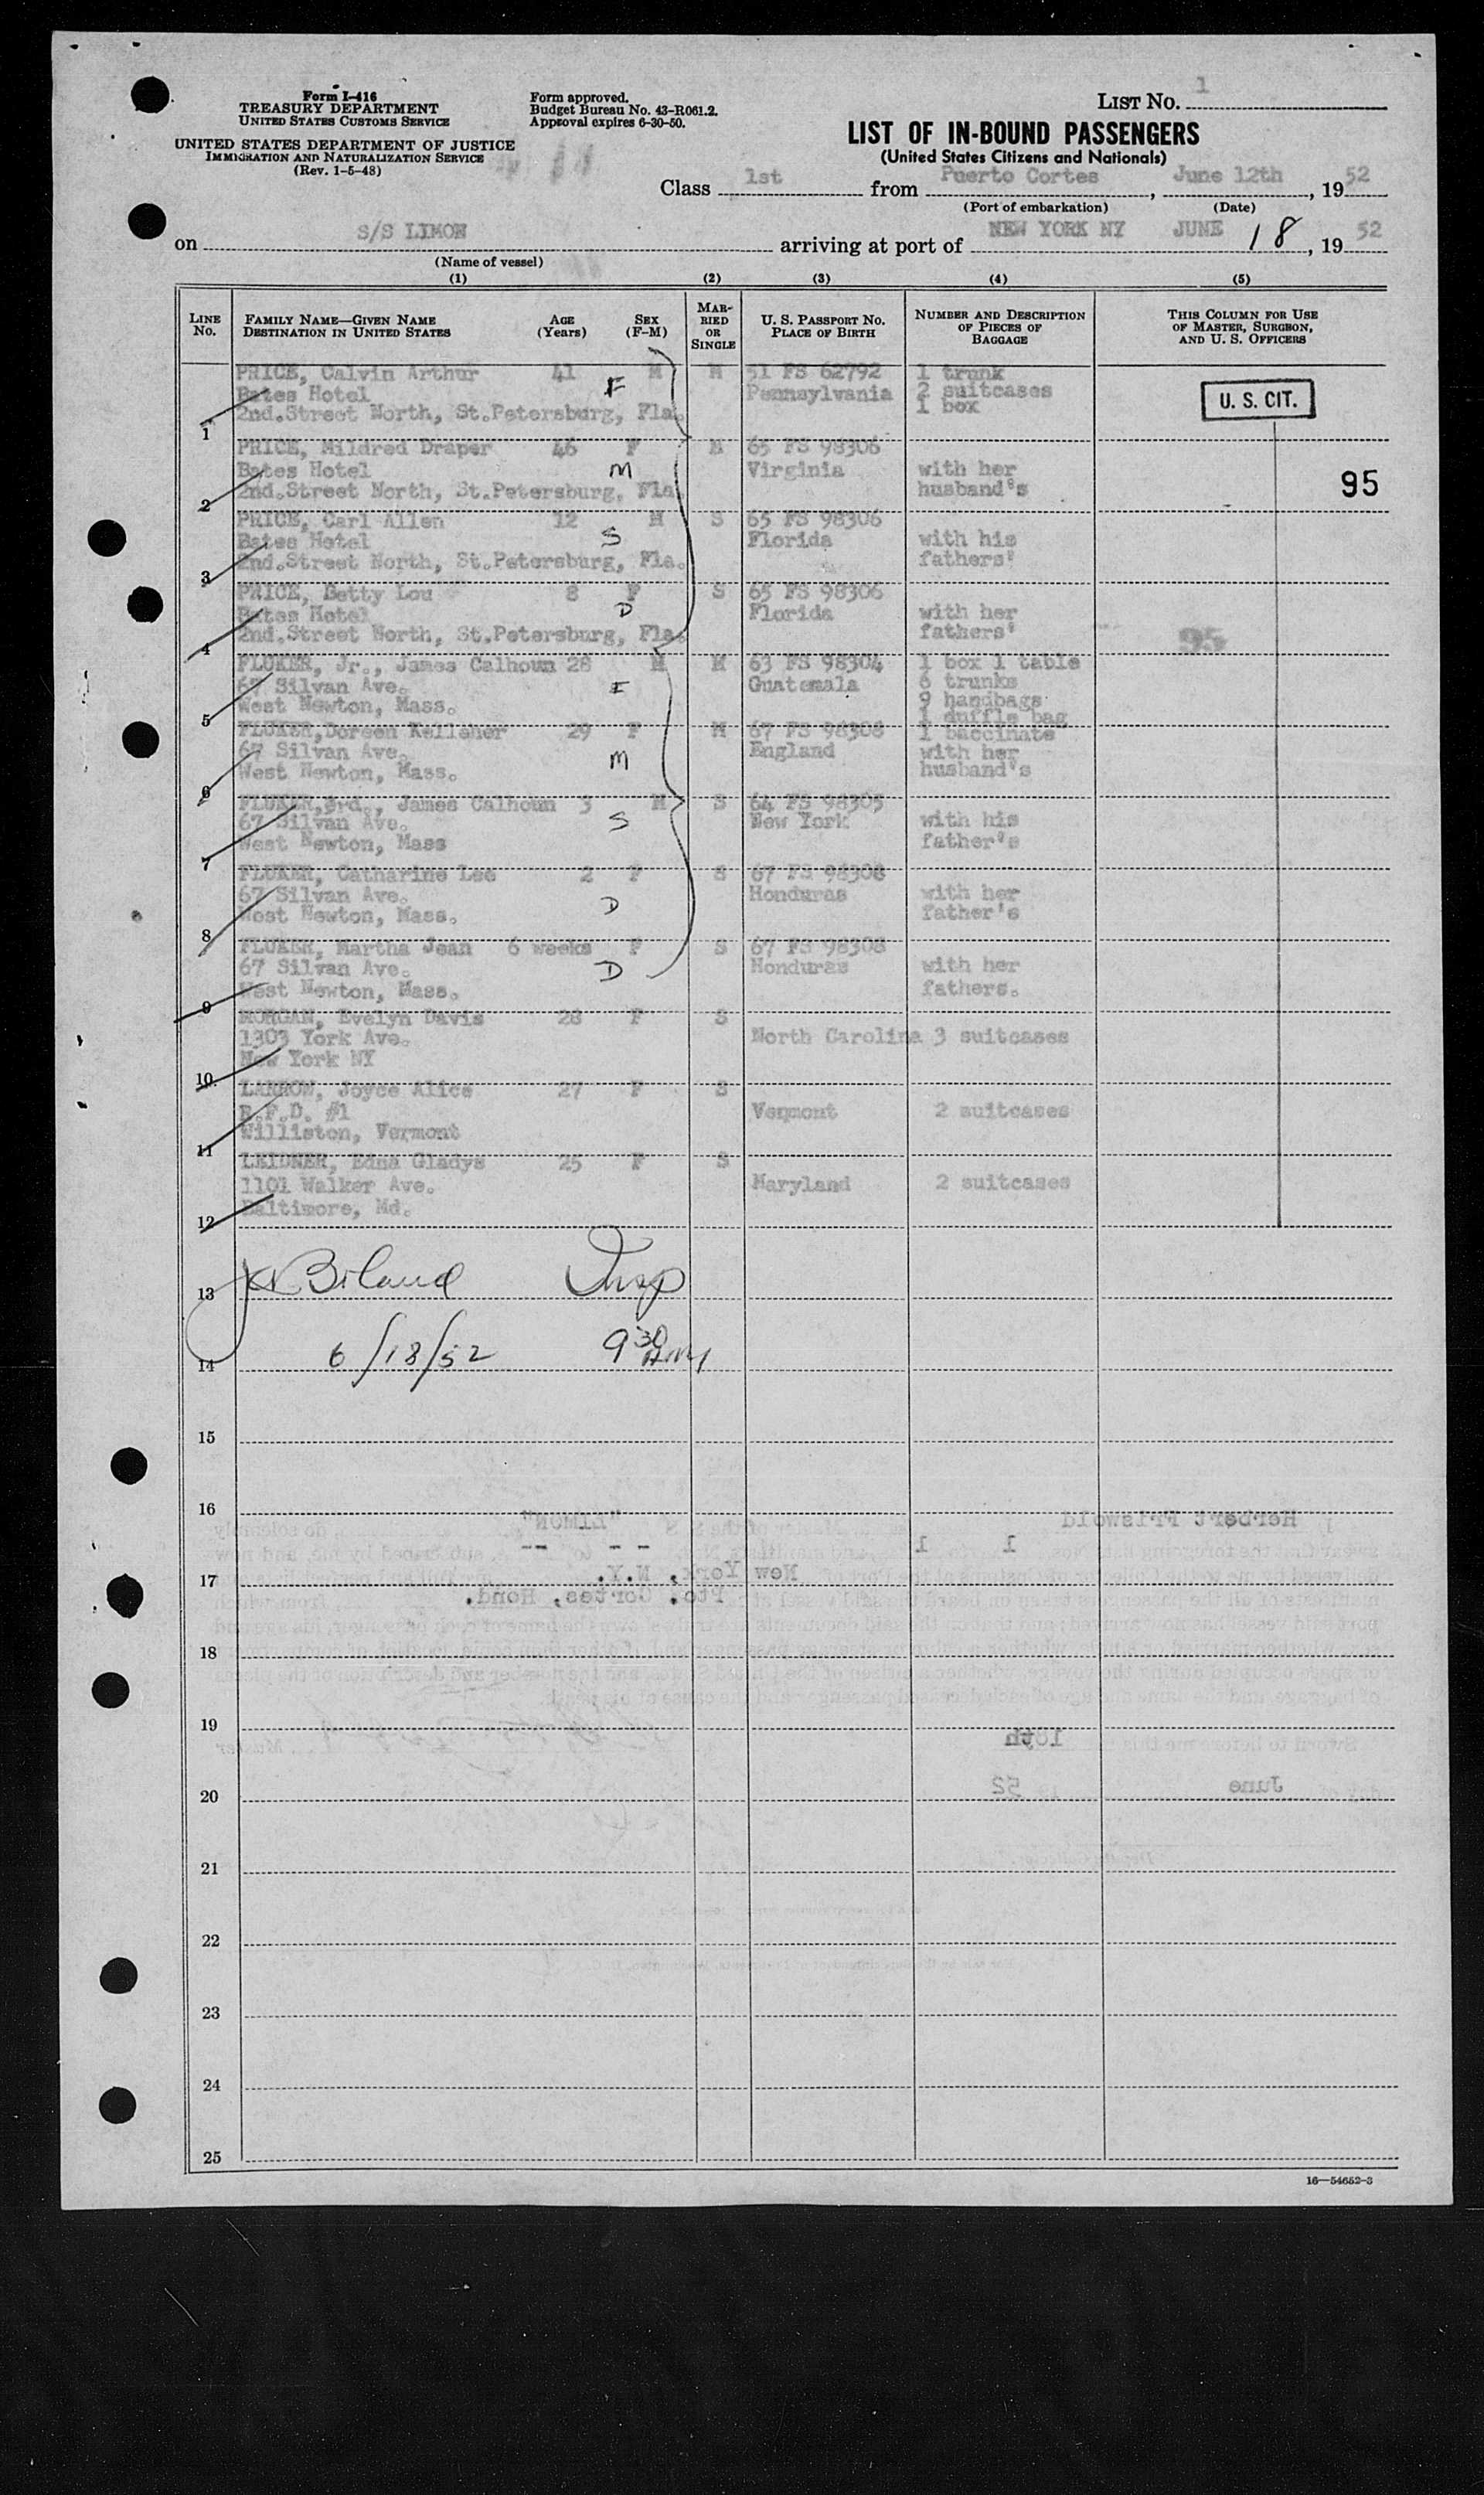 Form I-416
TREASURY DEPARTMENT
UNITED STATES CUSTOMS SERVICE
UNITED STATES DEPARTMENT OF JUSTICE
IMMIGRATION AND NATURALIZATION SERVICE
(Rev. 1-5-48)
Form approved.
Budget Bureau No. 43-R061.2.
Approval expires 6-30-50.
LIST NO. 1
LIST OF IN-BOUND PASSENGERS
(United States Citizens and Nationals)
Class 1st from Puerto Cortes, June 12th, 19 52
(Port of embarkation) (Date)
on S/S LIMON arriving at port of NEW YORK NY JUNE 18, 19 52
(Name of vessel)
(1) (2) (3) (4) (5)
LINE NO. FAMILY NAME—GIVEN NAME DESTINATION IN UNITED STATES AGE (Years) SEX (F-M) MARRIED OR SINGLE U. S. PASSPORT NO. PLACE OF BIRTH NUMBER AND DESCRIPTION OF PIECES OF BAGGAGE THIS COLUMN FOR USE OF MASTER, SURGEON, AND U. S. OFFICERS
PRICE, Calvin Arthur 41 M M 51 FS 62792 1 trunk
Bates Hotel F Pennsylvania 2 suitcases U. S. CIT.
1 2nd.Street North, St.Petersburg, Fla. 1 box
PRICE, Mildred Draper 46 F M 65 FS 98306
Bates Hotel M Virginia with her 95
2 2nd.Street North, St.Petersburg, Fla. husband's
PRICE, Carl Allen 12 M S 65 FS 98306
Bates Hotel S Florida with his
3 2nd.Street North, St.Petersburg, Fla. fathers'
PRICE, Betty Lou 8 F S 65 FS 98306
Bates Hotel D Florida with her
4 2nd.Street North, St.Petersburg, Fla. fathers' 95
FLUKER, Jr., James Calhoun 28 M M 63 FS 98304 1 box 1 table
67 Silvan Ave. F Guatemala 6 trunks
5 West Newton, Mass. 9 handbags
1 duffle bag
FLUKER,Doreen Kelleher 29 F M 67 FS 98308 1 baccinate
67 Silvan Ave. M England with her
6 West Newton, Mass. husband's
FLUKER,3rd., James Calhoun 3 M S 64 FS 98305
67 Silvan Ave. S New York with his
7 West Newton, Mass father's
FLUKER, Catharine Lee 2 F S 67 FS 98308
67 Silvan Ave. D Honduras with her
8 West Newton, Mass. father's
FLUKER, Martha Jean 6 weeks F S 67 FS 98308
67 Silvan Ave. D Honduras with her
9 West Newton, Mass. fathers.
MORGAN, Evelyn Davis 28 F S
1303 York Ave. North Carolina 3 suitcases
10 New York NY
LARROW, Joyce Alice 27 F S
R.F.D. #1 Vermont 2 suitcases
11 Williston, Vermont
LEIDNER, Edna Gladys 25 F S
1101 Walker Ave. Maryland 2 suitcases
12 Baltimore, Md.
13 Insp
14 6/18/52 9 30 AM
15
16
Herbert Friswold "LIMON"
1 1 -- --
17 New York, N.Y.
Pto. Cortes, Hond.
18
19
18th
20 June 52
21
22
23
24
25
16—54652-3